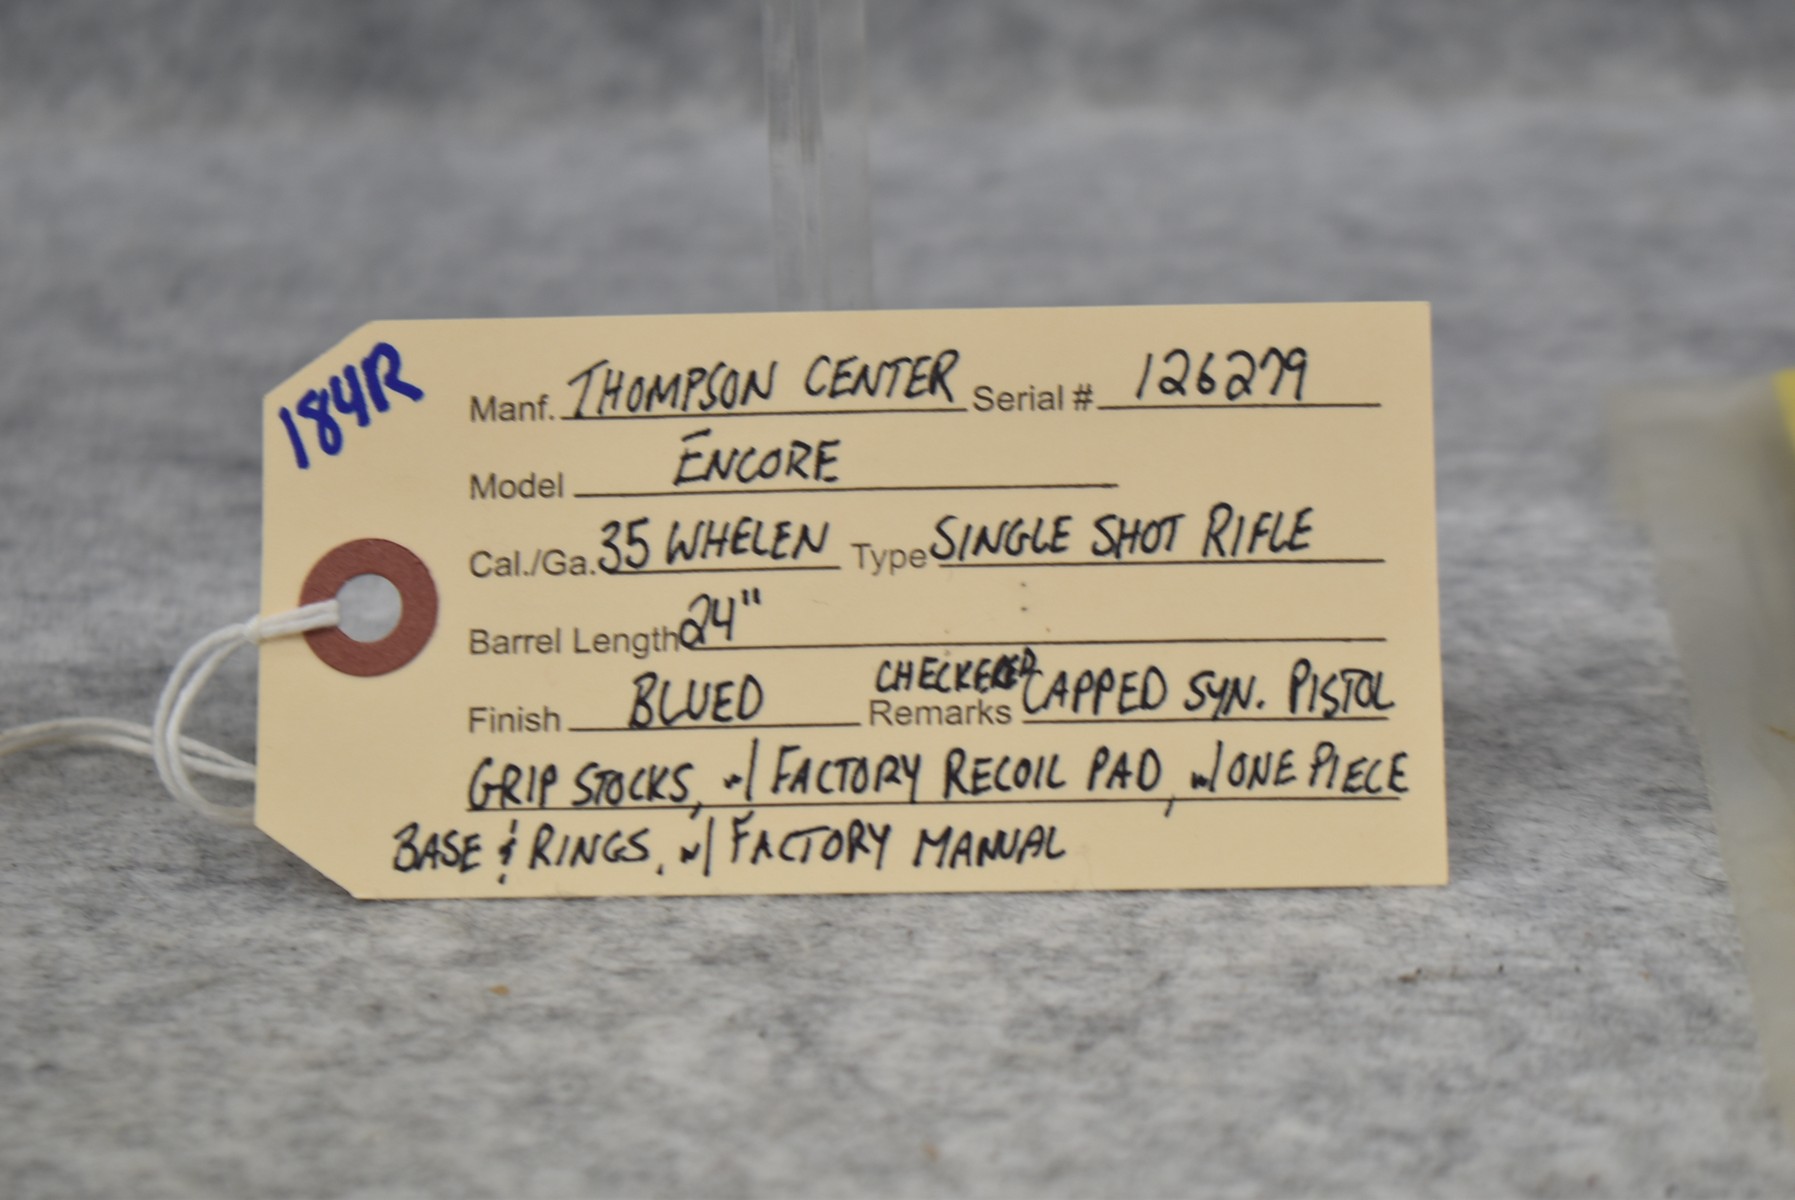 184R
Manf. THOMPSON CENTER Serial # 126279
Model ENCORE
Cal./Ga. 35 WHELEN Type SINGLE SHOT RIFLE
Barrel Length 24"
Finish BLUED Remarks CHECKERED CAPPED SYN. PISTOL
GRIP STOCKS, w/ FACTORY RECOIL PAD, w/ ONE PIECE
BASE & RINGS, w/ FACTORY MANUAL